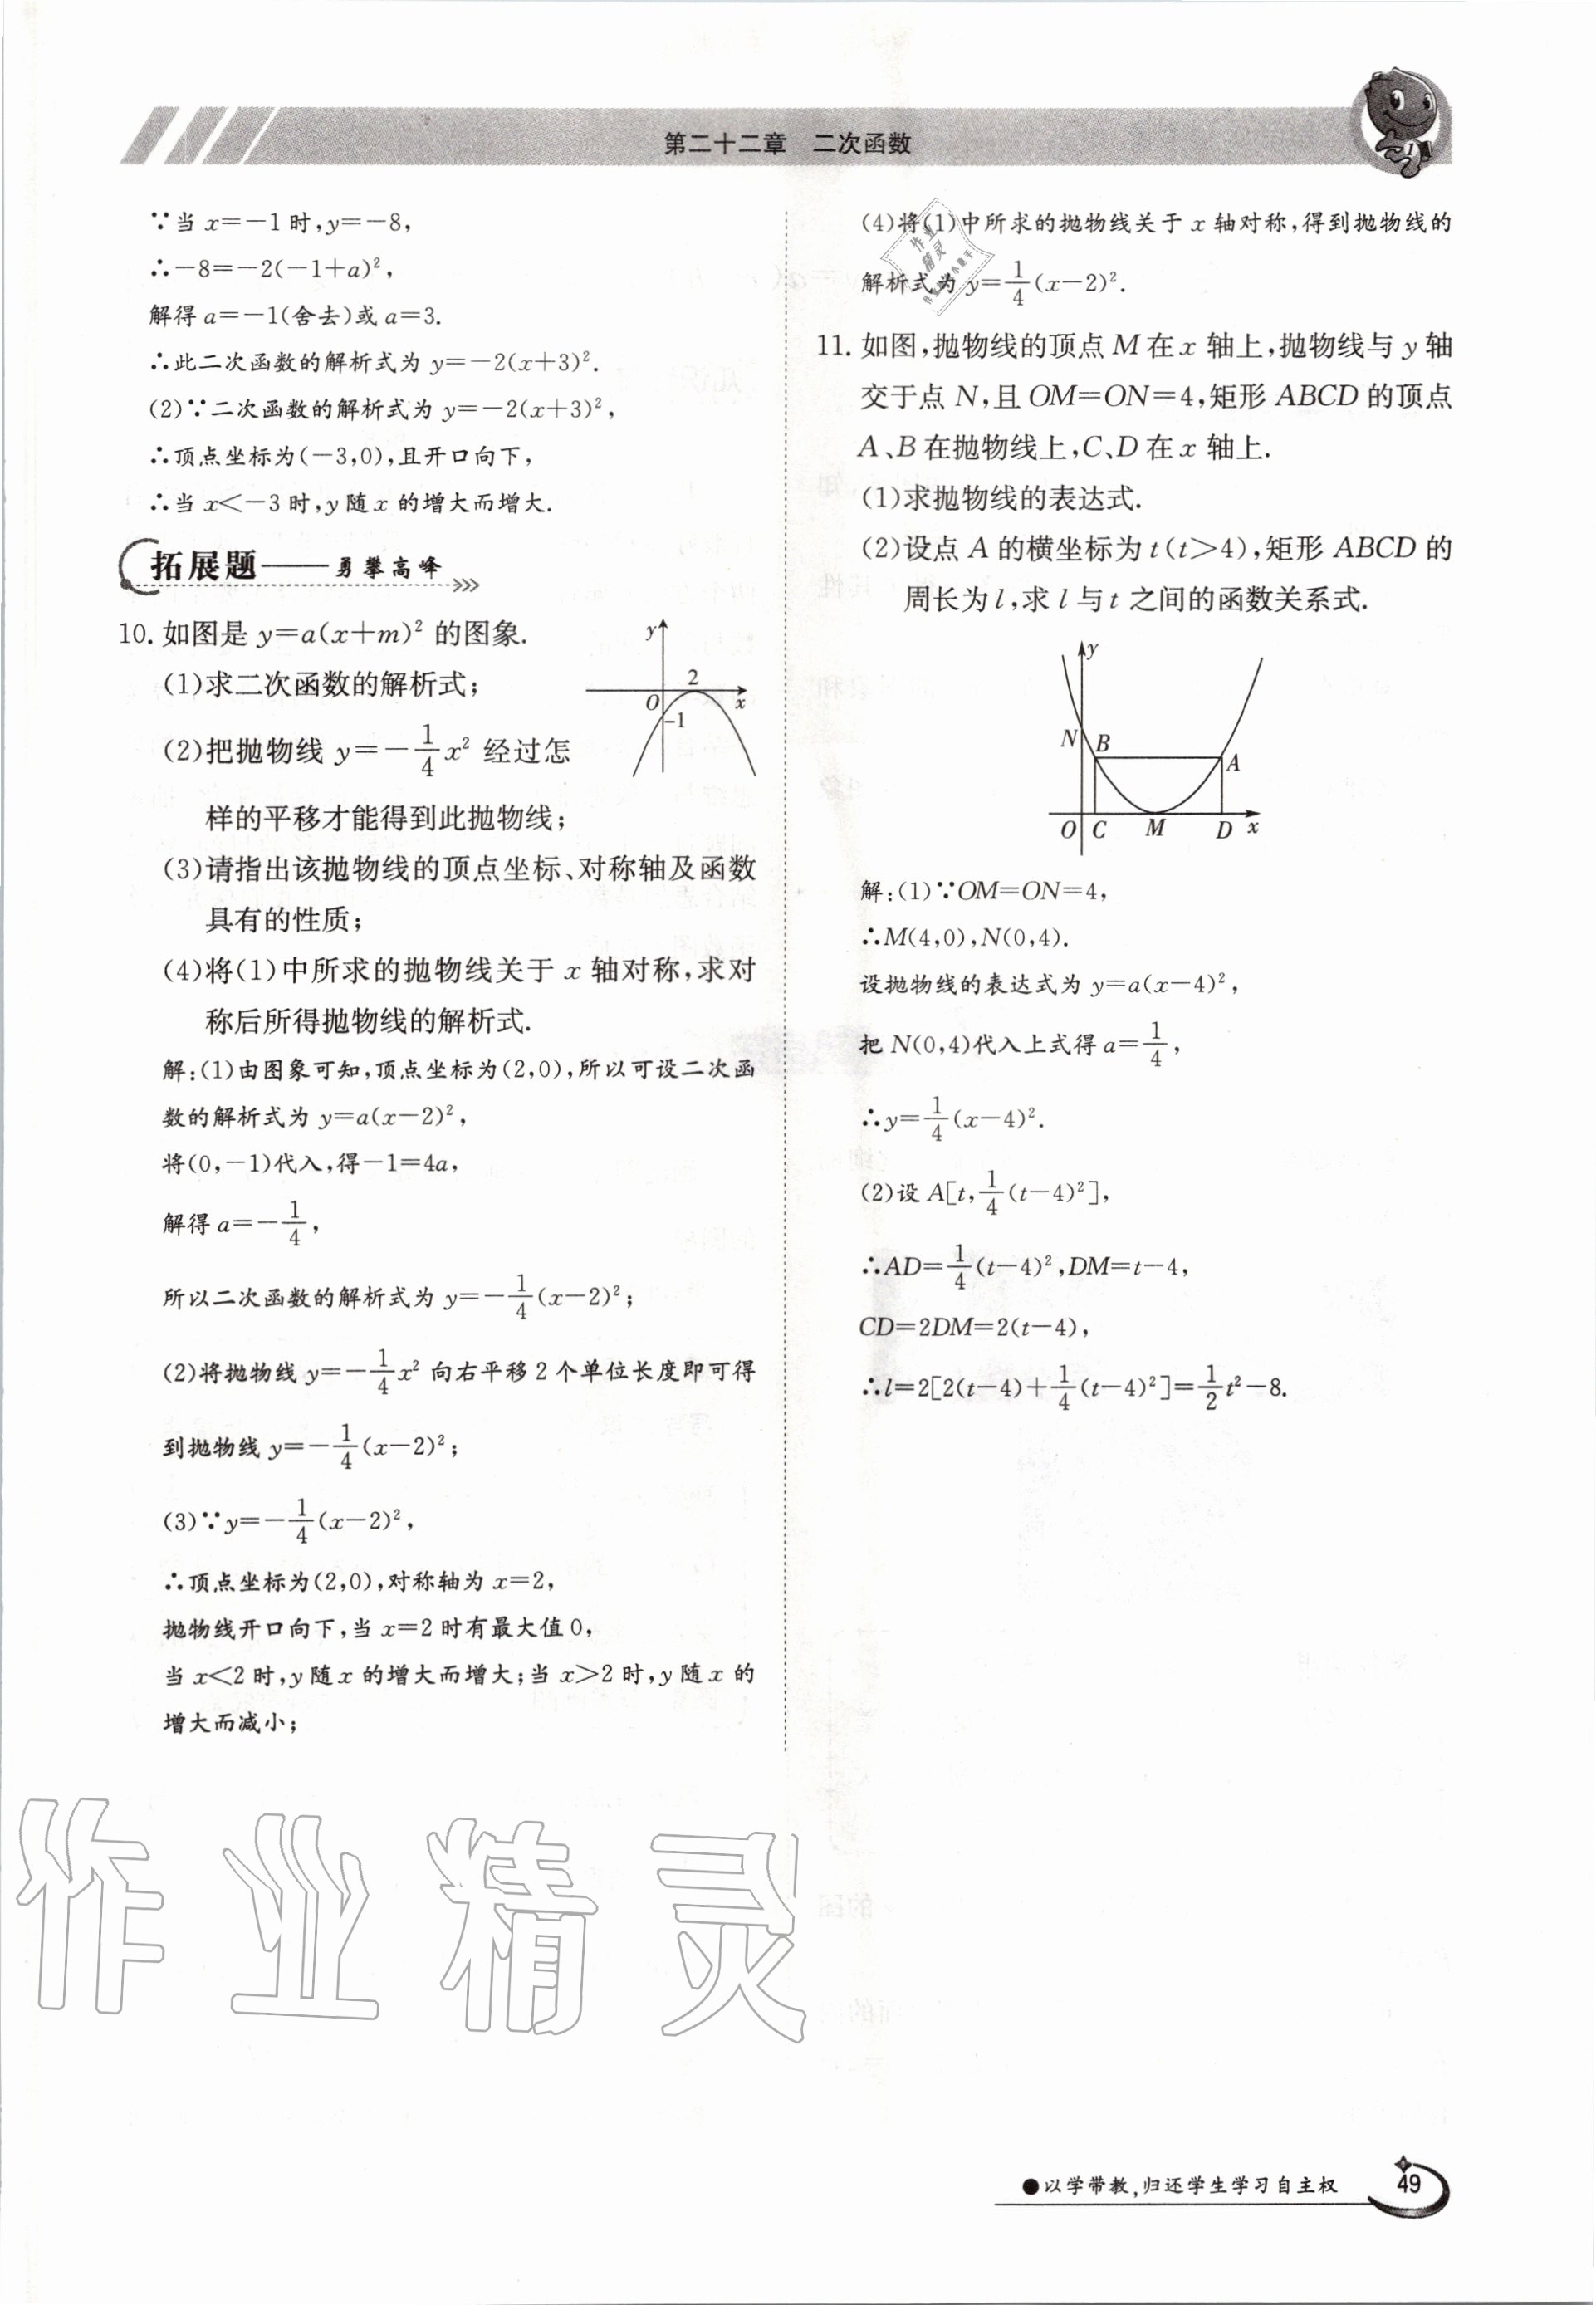 第二十二章 二次函数
∵当 x=-1 时,y=-8,
∴-8=-2(-1+a)²,
解得 a=-1(舍去)或 a=3.
∴此二次函数的解析式为 y=-2(x+3)².
(2)∵二次函数的解析式为 y=-2(x+3)²,
∴顶点坐标为(-3,0),且开口向下,
∴当 x<-3 时,y 随 x 的增大而增大.
拓展题——勇攀高峰
10. 如图是 y=a(x+m)² 的图象.
(1)求二次函数的解析式;
(2)把抛物线 y=-1/4x² 经过怎
样的平移才能得到此抛物线;
(3)请指出该抛物线的顶点坐标、对称轴及函数
具有的性质;
(4)将(1)中所求的抛物线关于 x 轴对称,求对
称后所得抛物线的解析式.
y
2
O
x
-1
解:(1)由图象可知,顶点坐标为(2,0),所以可设二次函
数的解析式为 y=a(x-2)²,
将(0,-1)代入,得-1=4a,
解得 a=-1/4,
所以二次函数的解析式为 y=-1/4(x-2)²;
(2)将抛物线 y=-1/4x² 向右平移 2 个单位长度即可得
到抛物线 y=-1/4(x-2)²;
(3)∵y=-1/4(x-2)²,
∴顶点坐标为(2,0),对称轴为 x=2,
抛物线开口向下,当 x=2 时有最大值 0,
当 x<2 时,y 随 x 的增大而增大;当 x>2 时,y 随 x 的
增大而减小;
(4)将(1)中所求的抛物线关于 x 轴对称,得到抛物线的
解析式为 y=1/4(x-2)².
作业
精灵
11. 如图,抛物线的顶点 M 在 x 轴上,抛物线与 y 轴
交于点 N,且 OM=ON=4,矩形 ABCD 的顶点
A、B 在抛物线上,C、D 在 x 轴上.
(1)求抛物线的表达式.
(2)设点 A 的横坐标为 t(t>4),矩形 ABCD 的
周长为 l,求 l 与 t 之间的函数关系式.
y
N B
A
O C M D x
解:(1)∵OM=ON=4,
∴M(4,0),N(0,4).
设抛物线的表达式为 y=a(x-4)²,
把 N(0,4)代入上式得 a=1/4,
∴y=1/4(x-4)².
(2)设 A[t,1/4(t-4)²],
∴AD=1/4(t-4)²,DM=t-4,
CD=2DM=2(t-4),
∴l=2[2(t-4)+1/4(t-4)²]=1/2t²-8.
作业精灵
●以学带教,归还学生学习自主权
49